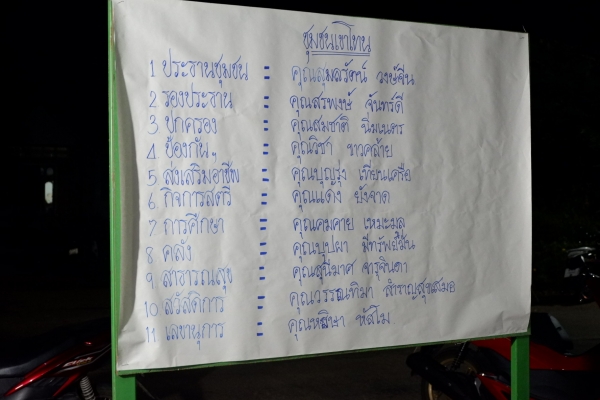 ชุมชนเขาโทน
1 ประธานชุมชน = คุณสุมลรัตน์ วงษ์จีน
2 รองประธาน = คุณสรพงษ์ จันทร์ดี
3 ปกครอง = คุณสมชาติ นิ่มเนตร
4 ป้องกันฯ = คุณวิชา ขาวคล้าย
5 ส่งเสริมอาชีพ = คุณบุญรุ่ง เทียนเครือ
6 กิจการสตรี = คุณแดง ยังจาด
7 การศึกษา = คุณคมคาย เหมะมูล
8 คลัง = คุณบุปผา มีทรัพย์มั่น
9 สาธารณสุข = คุณสุนิมาศ จารุจินดา
10 สวัสดิการ = คุณวรรณทิมา สำราญสุขเสมอ
11 เลขานุการ = คุณหริษา หัสโม